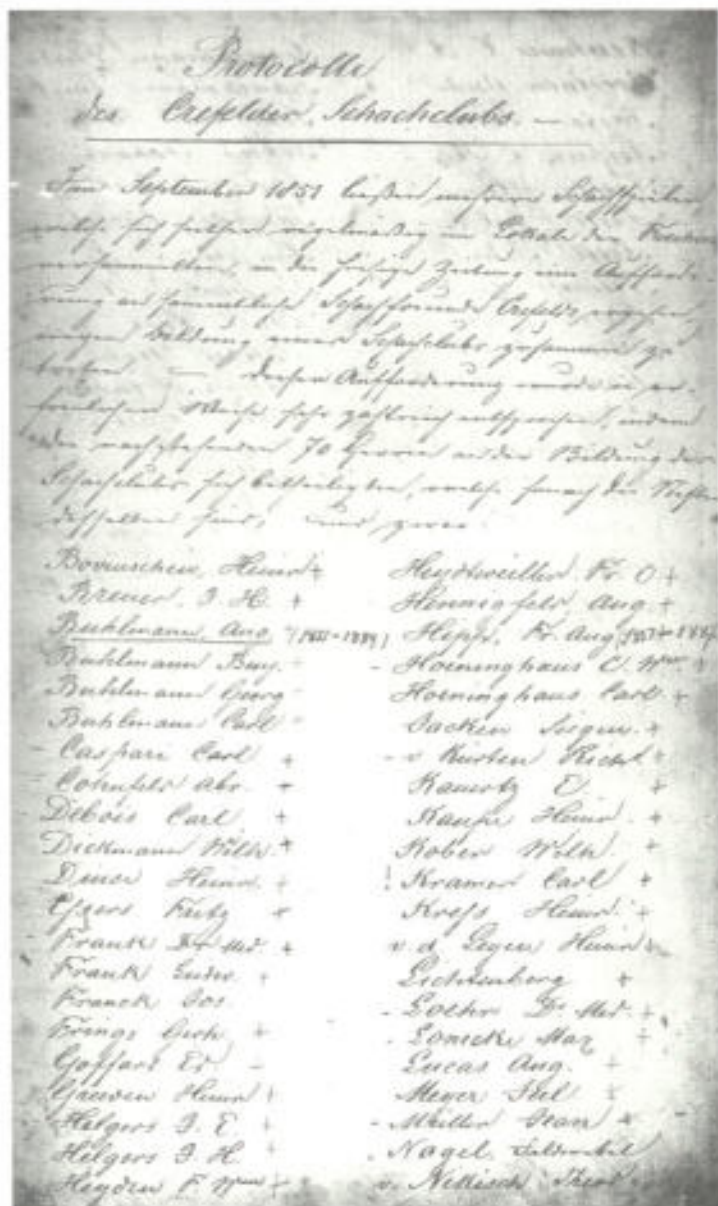 Protocolle
des Crefelder Schachclubs. —
Im September 1851 ließen mehrere Schachspieler,
welche sich seither regelmäßig im Lokale der
versammelten, in die hiesige Zeitung eine Aufforde-
rung an sämmtliche Schachfreunde Crefelds ergehen,
wegen Bildung eines Schachclubs zusammen zu
treten. — Dieser Aufforderung wurde in er-
freulicher Weise sehr zahlreich entsprochen, indem
die nachstehenden 70 Herren an der Bildung des
Schachclubs sich betheiligten, welche sonach die
desselben sind, und zwar:
Heinr +
Breuer, J. H. +
Buhlmann, Aug (1851-1889)
Buhlmann
Buhlmann Georg
Buhlmann Carl
- Caspari Carl +
- Abr. +
Debois Carl +
Dickmann Wilh. +
Heinr. +
Fritz +
Frank Dr Med. +
Frank
Franck Jos
Frings Gerh. +
Goffart Ed
Greeven Heinr +
- Helgers J. E. +
Helgers J. H. +
Heyden F. Wm +
Heydtweiller Fr. O +
Aug. +
Fr. Aug
- Hoeninghaus C. Wm +
Hoeninghaus Carl. +
+
- v Kürten Rich. +
E +
Heinr. +
Kober Wilh. +
! Kramer Carl +
Kress Heinr. +
v. d. Leyen Heinr +
Lichtenberg +
- Loehr Dr Med. +
- Max +
Lucas Aug. +
Meyer +
- Müller Jean +
. Nagel, Feldwebel
v. Theod.